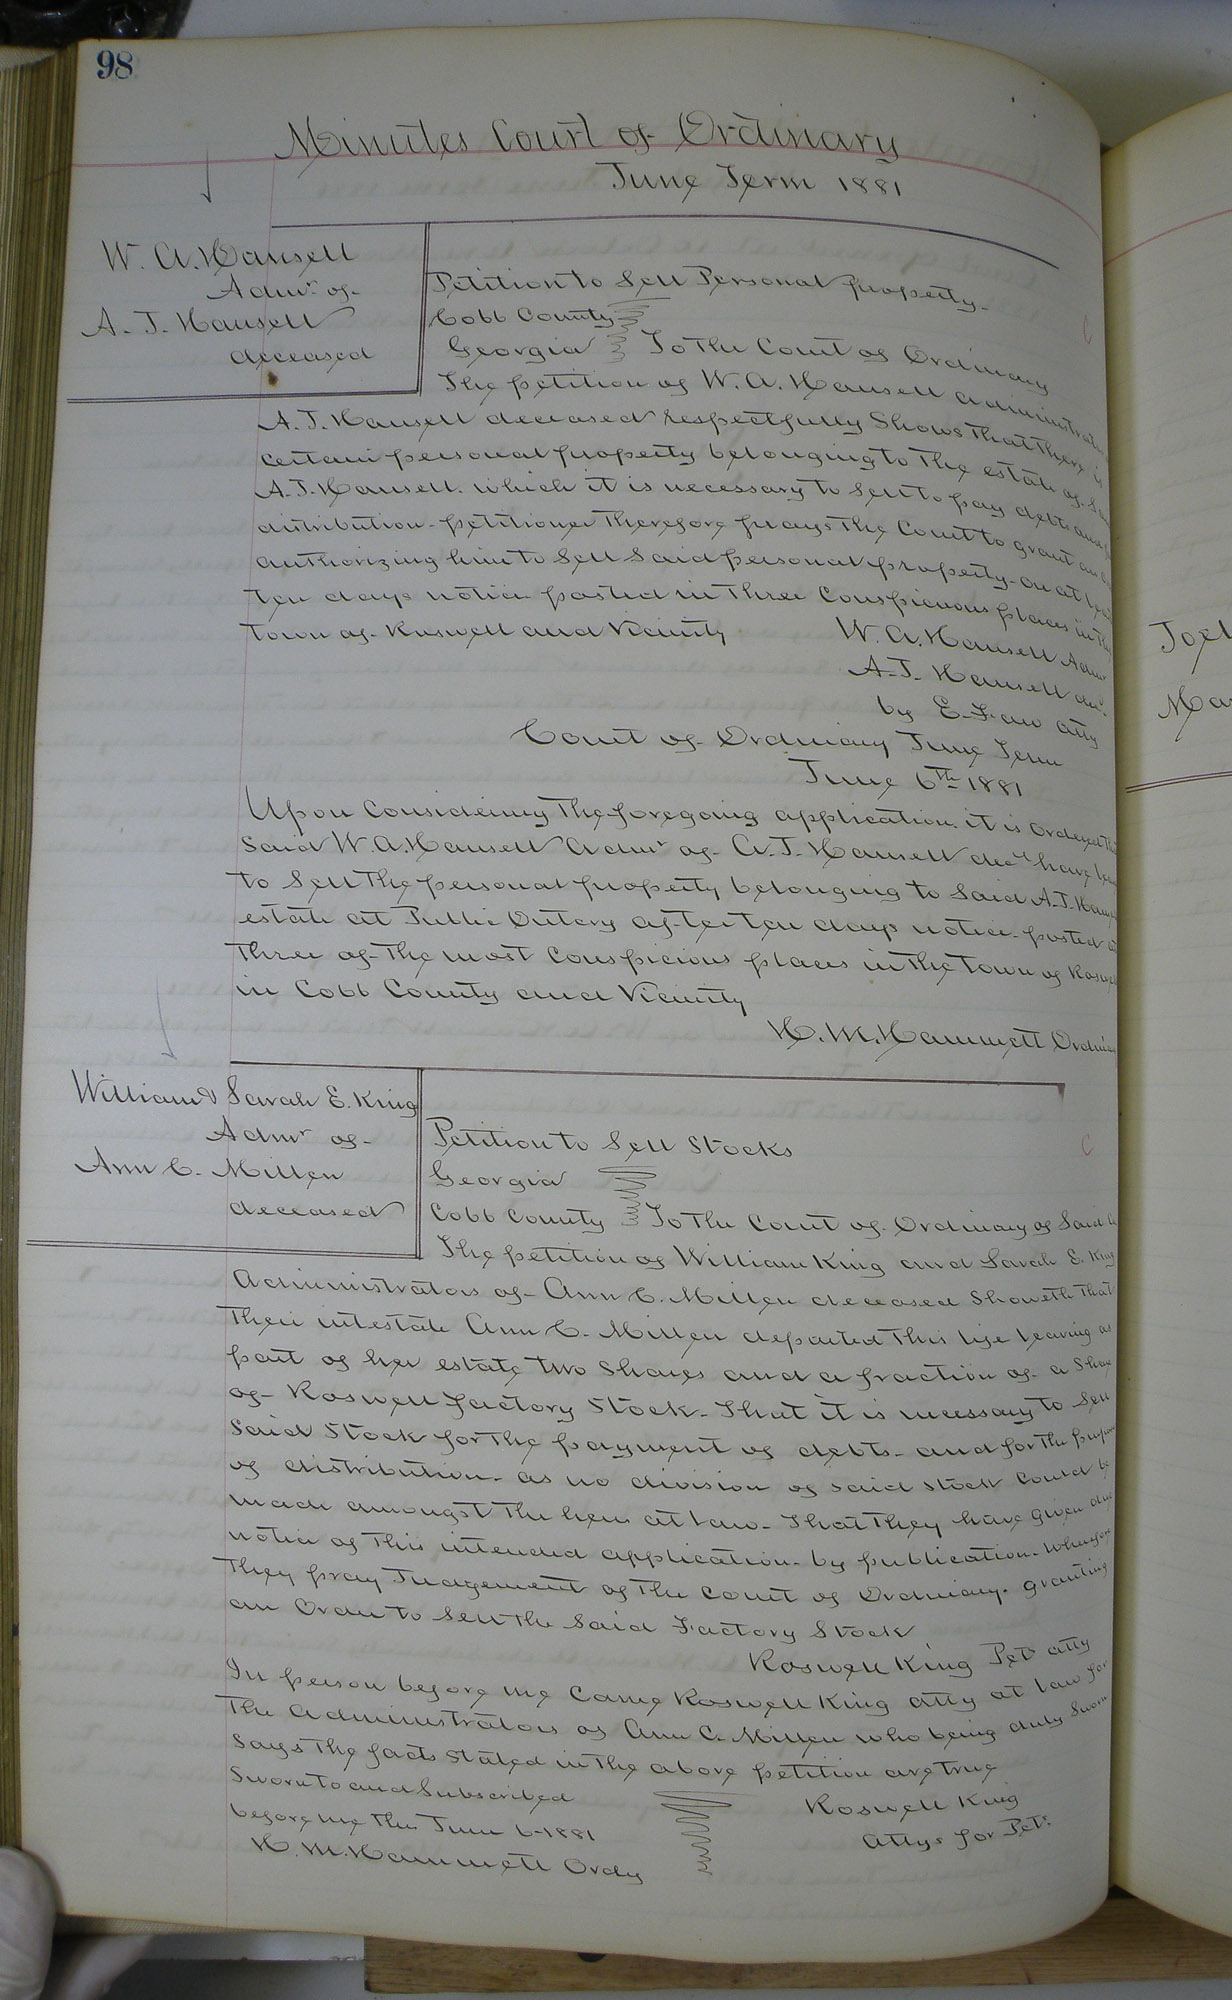 98
Minutes Court of Ordinary
June Term 1881
W. A. Hansell
Admr of
A. J. Hansell
deceased
Petition to Sell Personal property
Cobb County
Georgia To the Court of Ordinary
The petition of W. A. Hansell administrator
A. J. Hansell deceased respectfully Shows That There is
certain personal property belonging to The estate of
A. J. Hansell. which it is necessary to Sell to pay debts and
distribution. petitioner Therefore prays The Court to grant an
authorizing him to Sell Said personal property on at least
ten days notice posted in Three Conspicuous places in the
Town of Roswell and Vicinity
W. A. Hansell Admr
A. J. Hansell decd
by E. Faw atty
Court of Ordinary June Term
June 6th 1881
Upon Considering The foregoing application it is ordered that
Said W. A. Hansell Admr of A. J. Hansell decd have leave
to Sell The personal property belonging to Said A. J. Hansell
estate at Public Outcry after ten days notice posted at
Three of The most Conspicious places in The Town of Roswell
in Cobb County and Vicinity
H. M. Hammett Ordinary
William & Sarah E. King
Admr of
Ann C. Millen
deceased
Petition to Sell Stocks
Georgia
Cobb County To The Court of Ordinary of Said Co
The petition of William King and Sarah E. King
Administrators of Ann C. Millen deceased Showeth That
Their intestate Ann C. Millen departed This life leaving as
part of her estate two Shares and a fraction of a Share
of Roswell Factory Stock. That it is necessary to Sell
Said Stock for The payment of debts. and for The purpose
of distribution. as no division of said stock could be
made amongst The heirs at law. That They have given due
notice of This intended application. by publication. Wherefore
They pray Judgement of The Court of Ordinary. granting
an Order to Sell The Said Factory Stock
Roswell King Pets atty
In person before me Came Roswell King atty at law for
The Administrators of Ann C. Millen who being duly Sworn
Says The facts Stated in The above petition are true
Sworn to and Subscribed
before me this June 6-1881
H. M. Hammett Ordy
Roswell King
Attys for Pets
Joel
C
C